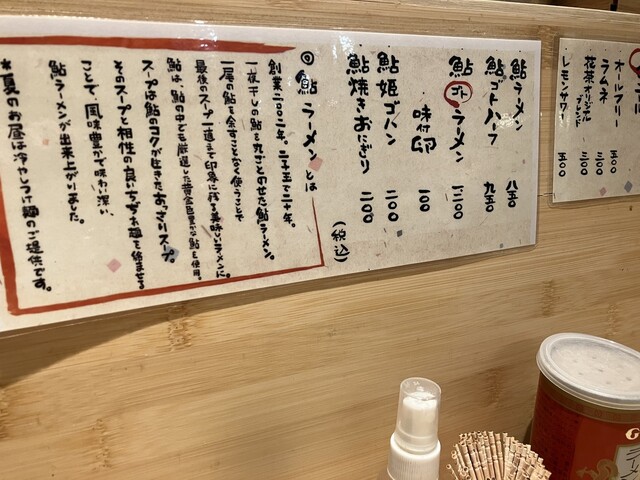 オールフリー 五〇〇
ラムネ 二〇〇
花茶オリジナルブレンド 二〇〇
レモンサワー 五〇〇
鮎ラーメン 八五〇
鮎ゴトハーフ 九五〇
鮎ゴトラーメン 一二〇〇
味付卵 一〇〇
鮎姫ゴハン 二〇〇
鮎焼きおにぎり 二〇〇
(税込)
◎鮎ラーメンとは
一夜干しの鮎を丸ごとのせた鮎ラーメン。
一尾の鮎を余すことなく使うことで
最後のスープ一滴まで印象に残る美味いラーメンに。
鮎は、鮎の中でも厳選した黄金色豊かな鮎を使用。
スープは鮎のコクが生きたあっさりスープ。
そのスープと相性の良いちぢれ麺を絡ませる
ことで、風味豊かで味わい深い、
鮎ラーメンが出来上がりました。
*夏のお昼は冷やしつけ麺のご提供です。